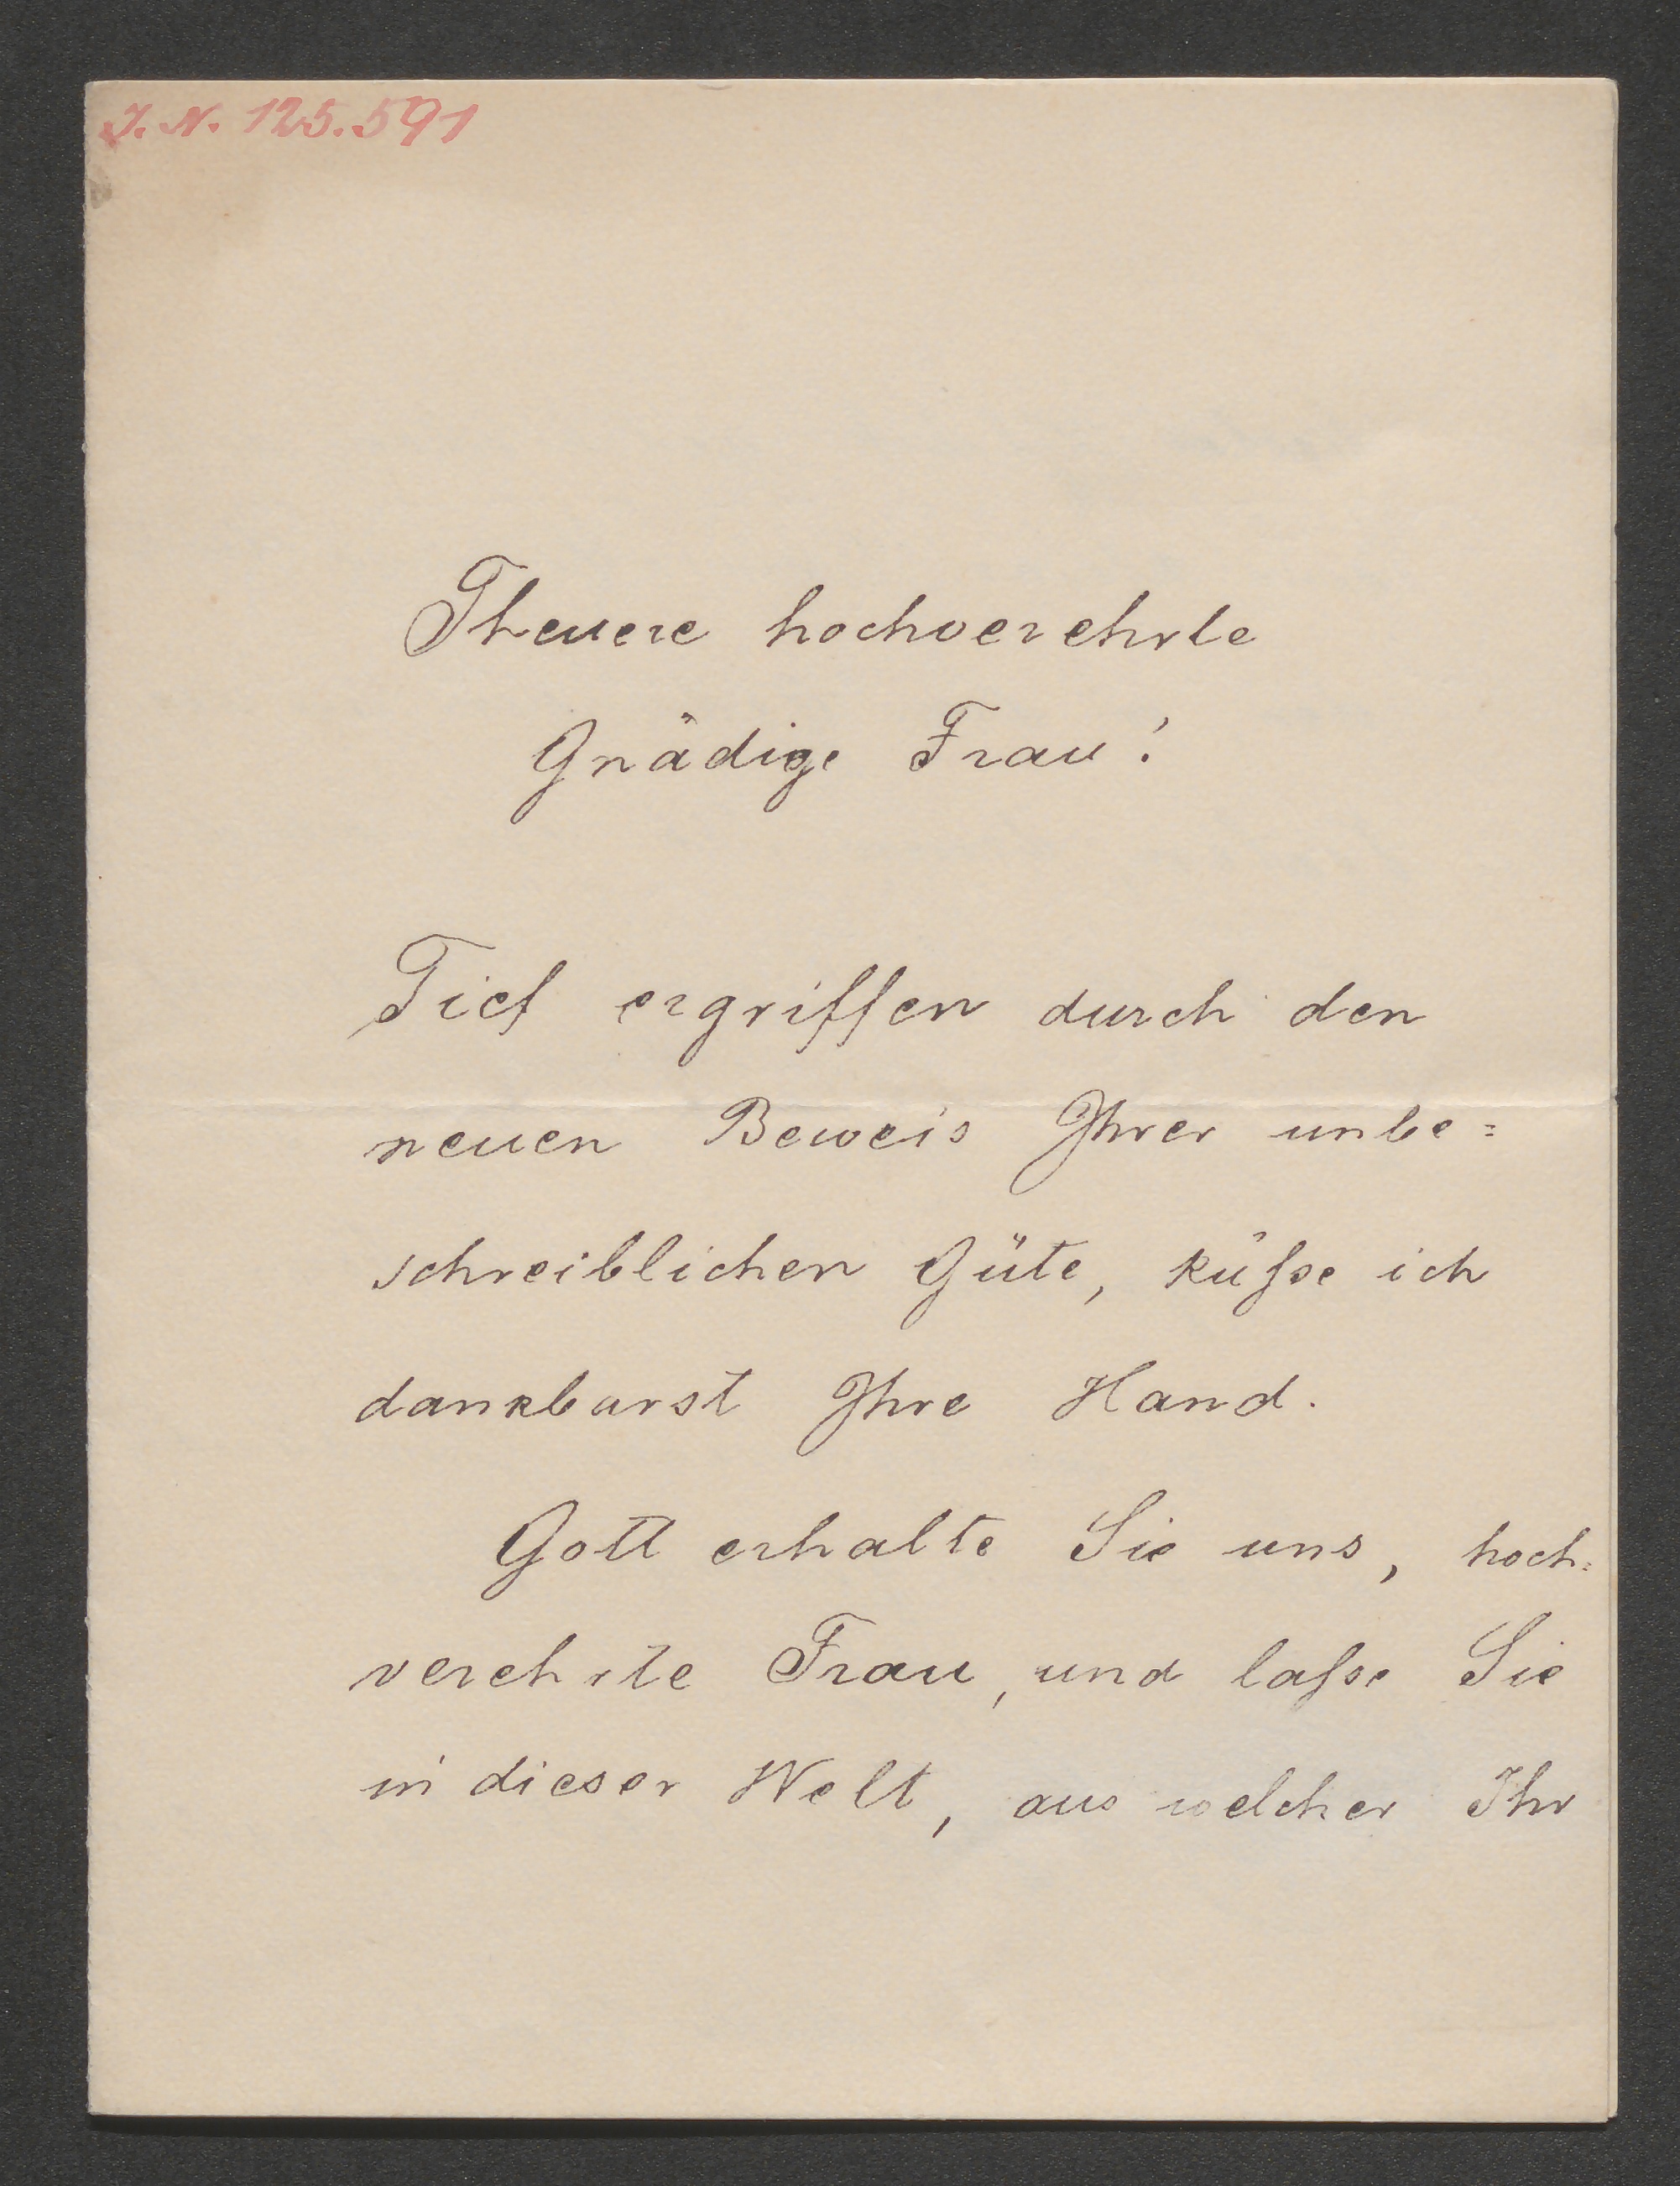 J. N. 125.591
Theuere hochverehrte
Gnädige Frau!
Tief ergriffen durch den
neuen Beweis Ihrer unbe=
schreiblichen Güte, küsse ich
dankbarst Ihre Hand.
Gott erhalte Sie uns, hoch=
verehrte Frau, und lasse Sie
in dieser Welt, aus welcher Ihr